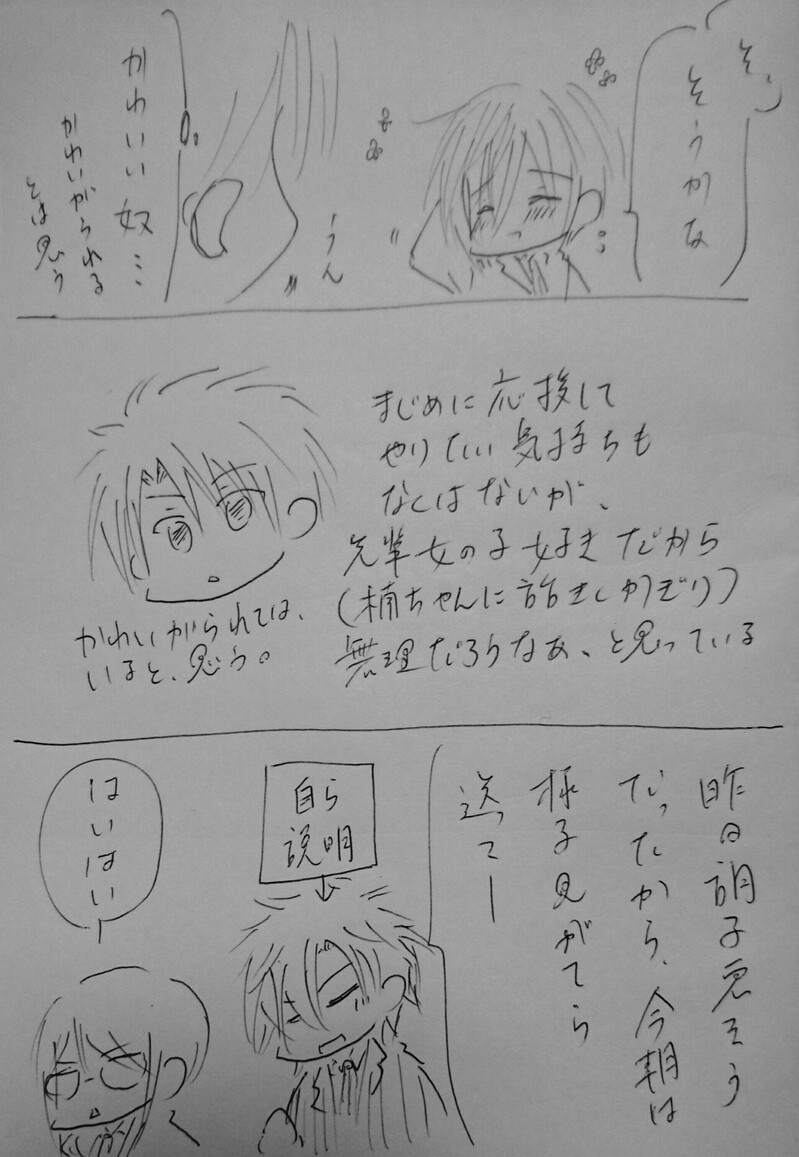 そ、う
そうかな
うん
かわいい奴…
かわいがられる
とは思う
まじめに応援して
やりたい気持ちも
なくはないが、
先輩女の子好きだから
(楠ちゃんに話きくかぎり)
無理だろうなあ、と思っている
かわいがられては、
いると、思う。
昨日調子悪そう
だったから、今朝は
様子見がてら
送ってー
自ら
説明
はいはい